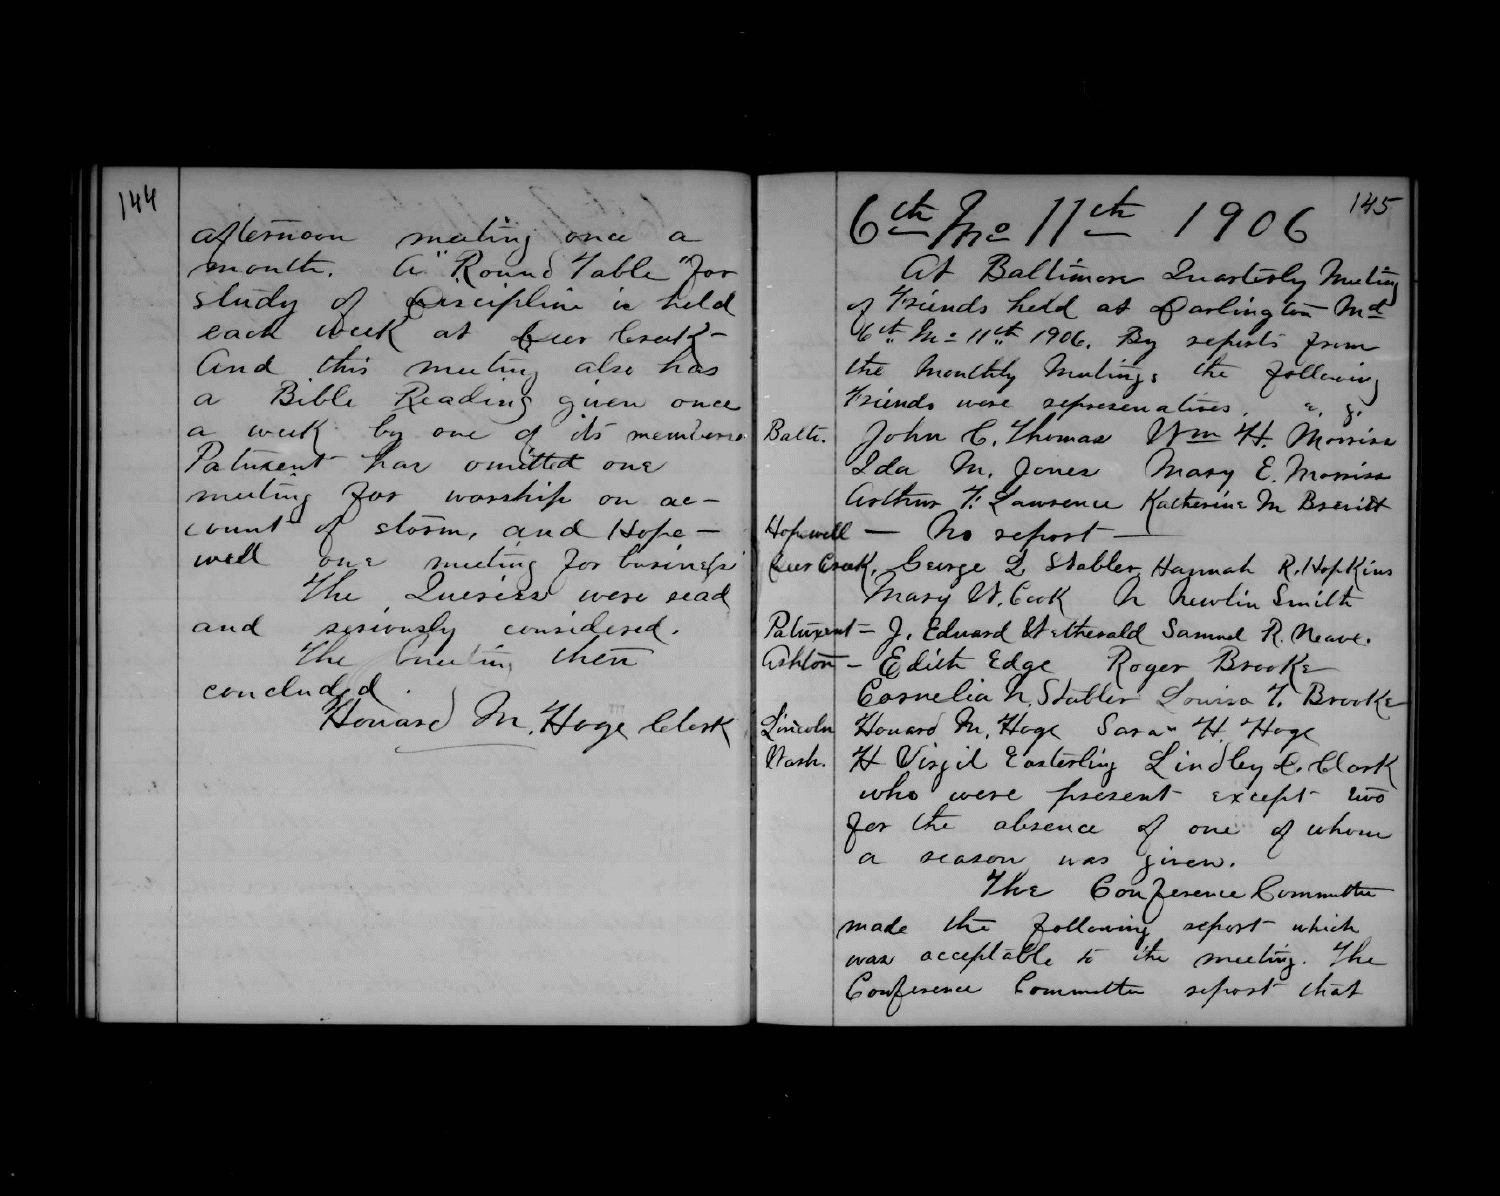 144
afternoon meeting once a
month. A "Round Table" for
study of Discipline is held
each week at Deer Creek-
And this meeting also has
a Bible Reading given once
a week by one of its members
Patuxent has omitted one
meeting for worship on ac-
count of storm, and Hope-
well one meeting for business
The Queries were read
and seriously considered.
The meeting then
concluded.
Howard M. Hoge Clerk
145
6th Mo 11th 1906
At Baltimore Quarterly Meeting
of Friends held at Darlington Md
6th Mo 11th 1906. By reports from
the Monthly Meetings the following
Friends were representatives.
Balt. John C. Thomas Wm H. Morriss
Ida M. Jones Mary E. Morriss
Arthur F. Lawrence Katherine M
Hopewell - No report -
Deer Creek. George L Stabler Hannah R. Hopkins
Mary W. Cook N Newlin Smith
Patuxent - J. Edward Wetherald Samuel R. Neave.
Ashton - Edith Edge Roger Brooke
Cornelia N. Stabler Louisa T. Brooke
Lincoln Howard M. Hoge Sarah H. Hoge
Wash. H Virgil Easterling Lindley D. Clark
who were present except two
for the absence of one of whom
a reason was given.
The Conference Committee
made the following report which
was acceptable to the meeting. The
Conference Committee report that